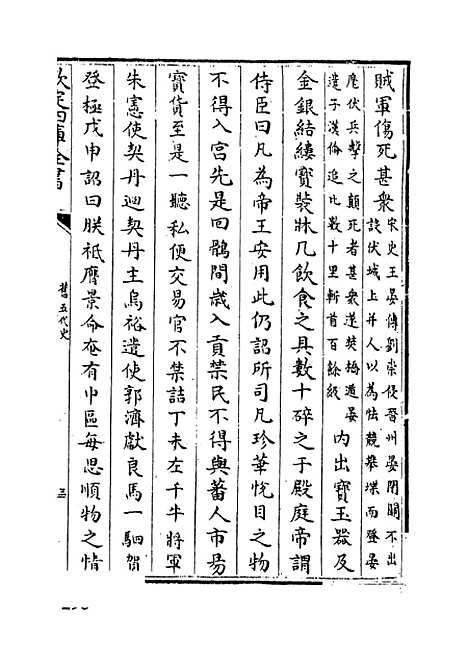 賊軍傷死甚衆宋史王晏傳劉崇侵晉州晏閉關不出
設伏城上并人以為怯競攀堞而登晏
麾伏兵擊之顛死者甚衆遂焚橋遁晏
遣子漢倫追北數十里斬首百餘級内出寶玉器及
金銀結縷寳裝牀几飲食之具數十碎之于殿庭帝謂
侍臣曰凡為帝王安用此仍詔所司凡珍華悦目之物
不得入宫先是回鶻間歲入貢禁民不得與蕃人市易
寳貨至是一聽私便交易官不禁詰丁未左千牛將軍
朱憲使契丹迴契丹主烏裕遣使郭濟獻良馬一駟賀
登極戊申詔曰朕祗膺景命奄有中區每思順物之情
欽定四庫全書
舊五代史
三